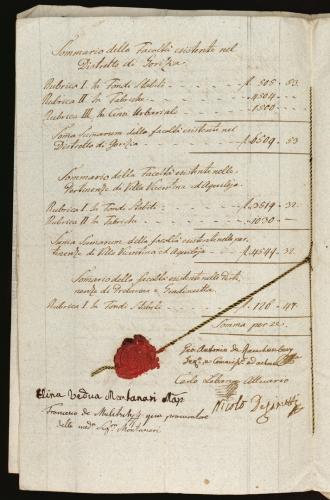 Sommario della Facoltà esistente nel
Distretto di Gorizia
Rubrica I. In Fondi Stabili - - - f. 505 . 53
Rubrica II. In Fabriche - - - 4504 . -
Rubrica III. In Censi Urbariali - - - 1500 . -
Suma Sumarum della facoltà esistente nel
Distretto di Gorizia - - - f. 6509 . 53
Sommario della Facoltà esistente nelle
Pertinenze di Villa Vicentina ed Aquileja
Rubrica I. In Fondi Stabili - - - f. 3519 . 32
Rubrica II. In Fabriche - - - 1030 . -
Suma Sumarum della facoltà esistente nelle per
tinenze di Villa Vicentina ed Aquileja - f. 4549 . 32
Somario della facoltà esistente nelle Perti
nenze di e
Rubrica I. In Fondi Stabili - - - f. 128 . 47
Somma per se.
Gio Antonio de
Carlo Attuario
Elina Vedua Montanari
Nicolo
Francesco de qual procuratore
della med.ª Sig.ª Montanari